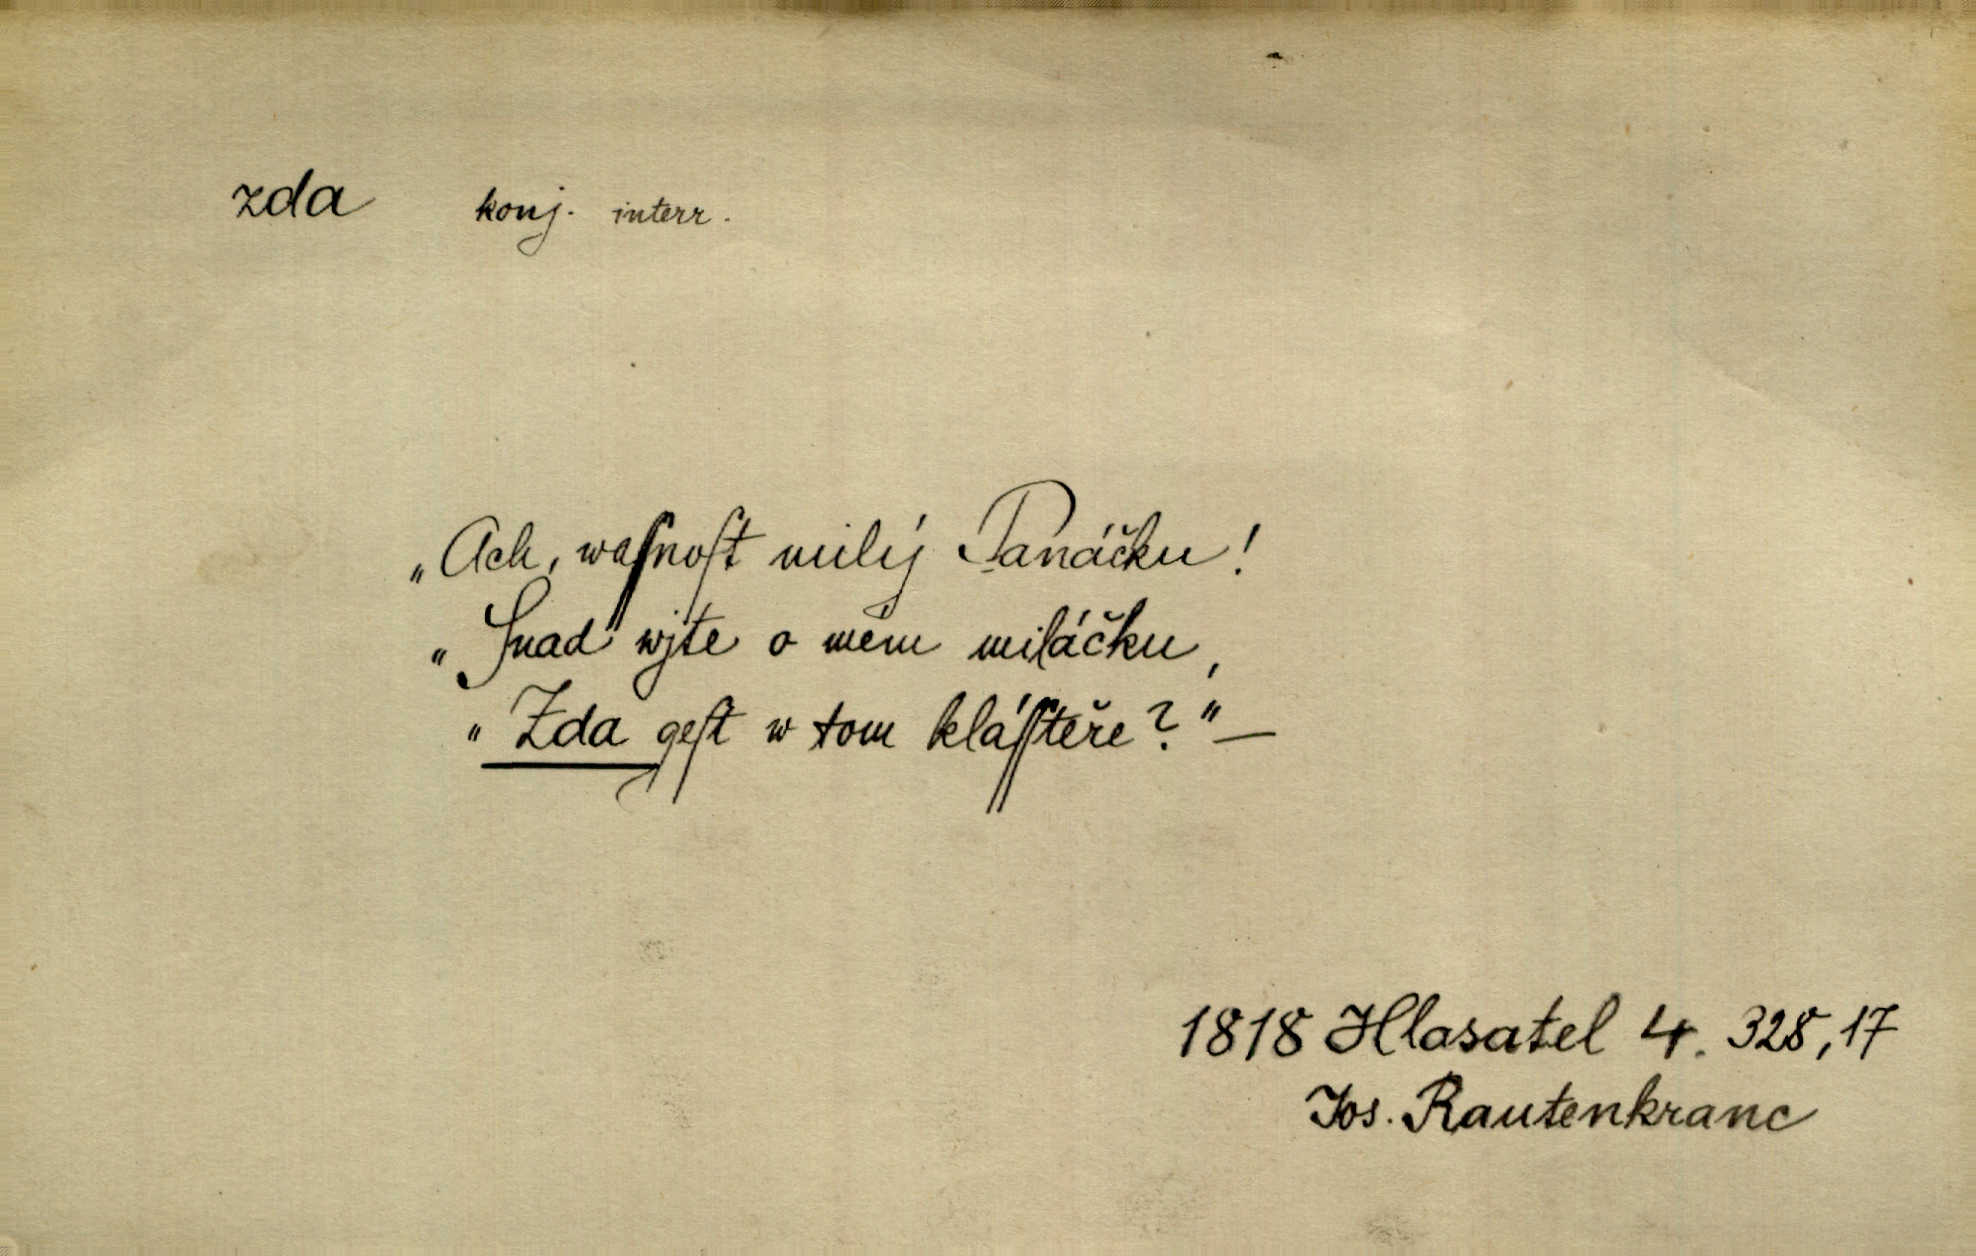 zda konj. interr.
„Ach, waſnoſt milý Panáčku!
„Snad wjte o mém miláčku,
„Zda geſt w tom kláſſteře?“ —
1818 Hlasatel 4. 328,17
Jos. Rautenkranc